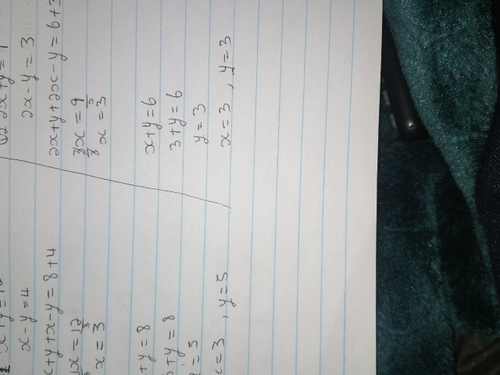 x-y=4
x+y+x-y=8+4
x=3
+y=8
+y=8
y=5
x=3 , y=5
2x+y=1
2x-y=3
2x+y+2x-y=6+3
3x=9
3 3
x=3
x+y=6
3+y=6
y=3
x=3 , y=3